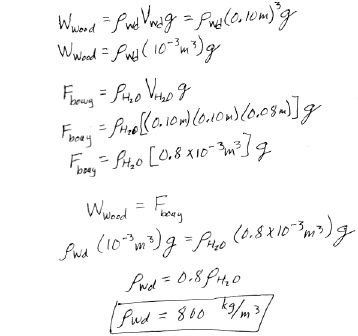 W_wood = ρ_wd V_wd g = ρ_wd (0.10 m)³ g
W_wood = ρ_wd (10⁻³ m³) g
F_bouy = ρ_H₂O V_H₂O g
F_bouy = ρ_H₂O [(0.10 m)(0.10 m)(0.08 m)] g
F_bouy = ρ_H₂O [0.8 x10⁻³ m³] g
W_wood = F_bouy
ρ_wd (10⁻³ m³) g = ρ_H₂O (0.8 x 10⁻³ m³) g
ρ_wd = 0.8 ρ_H₂O
ρ_wd = 800 kg/m³